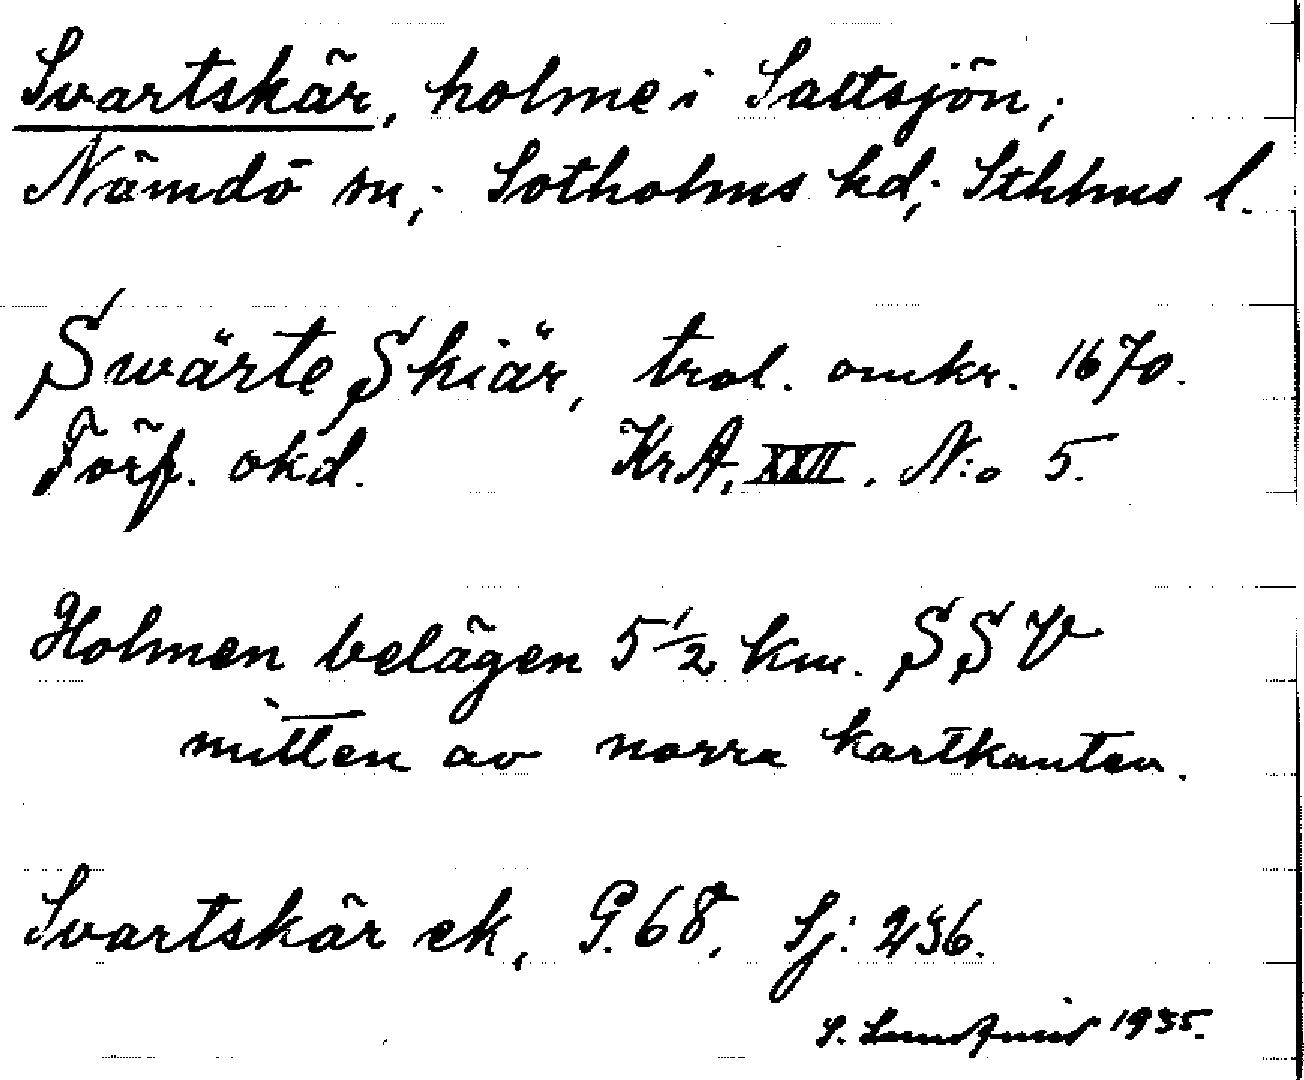 Svartskär, holme i Saltsjön;
Nämdö sn; Sotholms hd; Sthlms l.
Swärte Skiär, trol. omkr. 1670.
Förf. okd. KrA. XXII. N:o 5.
Holmen belägen 5 1/2 km. SSV
mitten av norra kartkanten.
Svartskär ek, G. 68. Sj: 236.
S. Landqvist 1935.